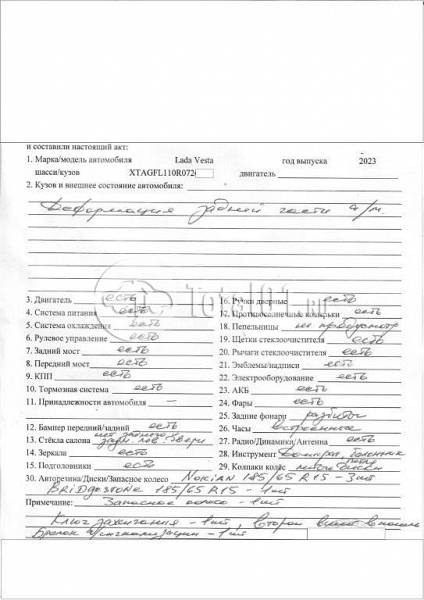 и составили настоящий акт:
1. Марка/модель автомобиля Lada Vesta год выпуска 2023
шасси/кузов XTAGFL110R072 двигатель
2. Кузов и внешнее состояние автомобиля:
Деформация задней части а/м.
3. Двигатель есть
4. Система питания есть
5. Система охлаждения есть
6. Рулевое управление есть
7. Задний мост есть
8. Передний мост есть
9. КПП есть
10. Тормозная система есть
11. Принадлежности автомобиля –
12. Бампер передний/задний есть
13. Стёкла салона нет заднего задн. лев. двери
14. Зеркала есть
15. Подголовники есть
16. Ручки дверные есть
17. Противосолнечные козырьки есть
18. Пепельницы не предусмотр
19. Щётки стеклоочистителя есть
20. Рычаги стеклоочистителя есть
21. Эмблемы/надписи есть
22. Электрооборудование есть
23. АКБ есть
24. Фары есть
25. Задние фонари разбиты
26. Часы встроенные
27. Радио/Динамики/Антенна есть
28. Инструмент Домкрат, Балонник
29. Колпаки колёс литые диски
30. Авторезина/Диски/Запасное колесо Nokian 185/65 R15 – 3шт
Bridgestone 185/65 R15 – 1шт
Примечание: Запасное колесо – 1шт
Ключ зажигания – 1шт, второй
Брелок сигнализации – 1шт
Total01.ru